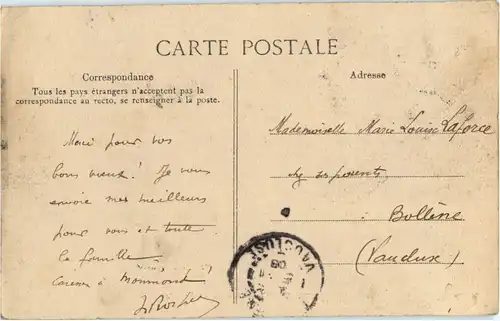 CARTE POSTALE
Correspondance
Tous les pays étrangers n'acceptent pas la
correspondance au recto, se renseigner à la poste.
Adresse
Merci pour vos
bons vœux! Je vous
envoie mes meilleurs
pour vous et toute
la famille.
à
Mademoiselle Marie Louise Laforce
chez ses parents
Bollène
(Vaucluse)
VAUCLUSE